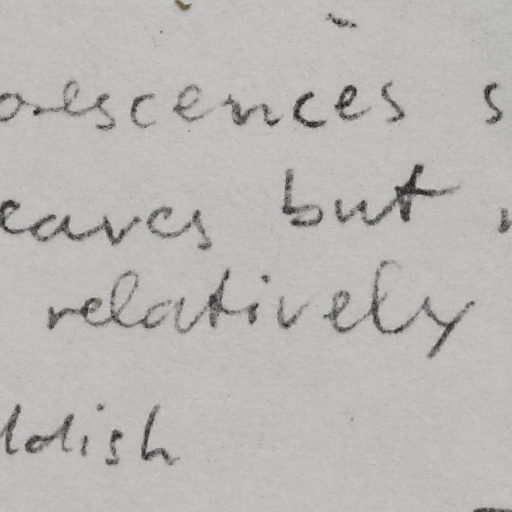 orescences s
eaves but
relatively
ldish